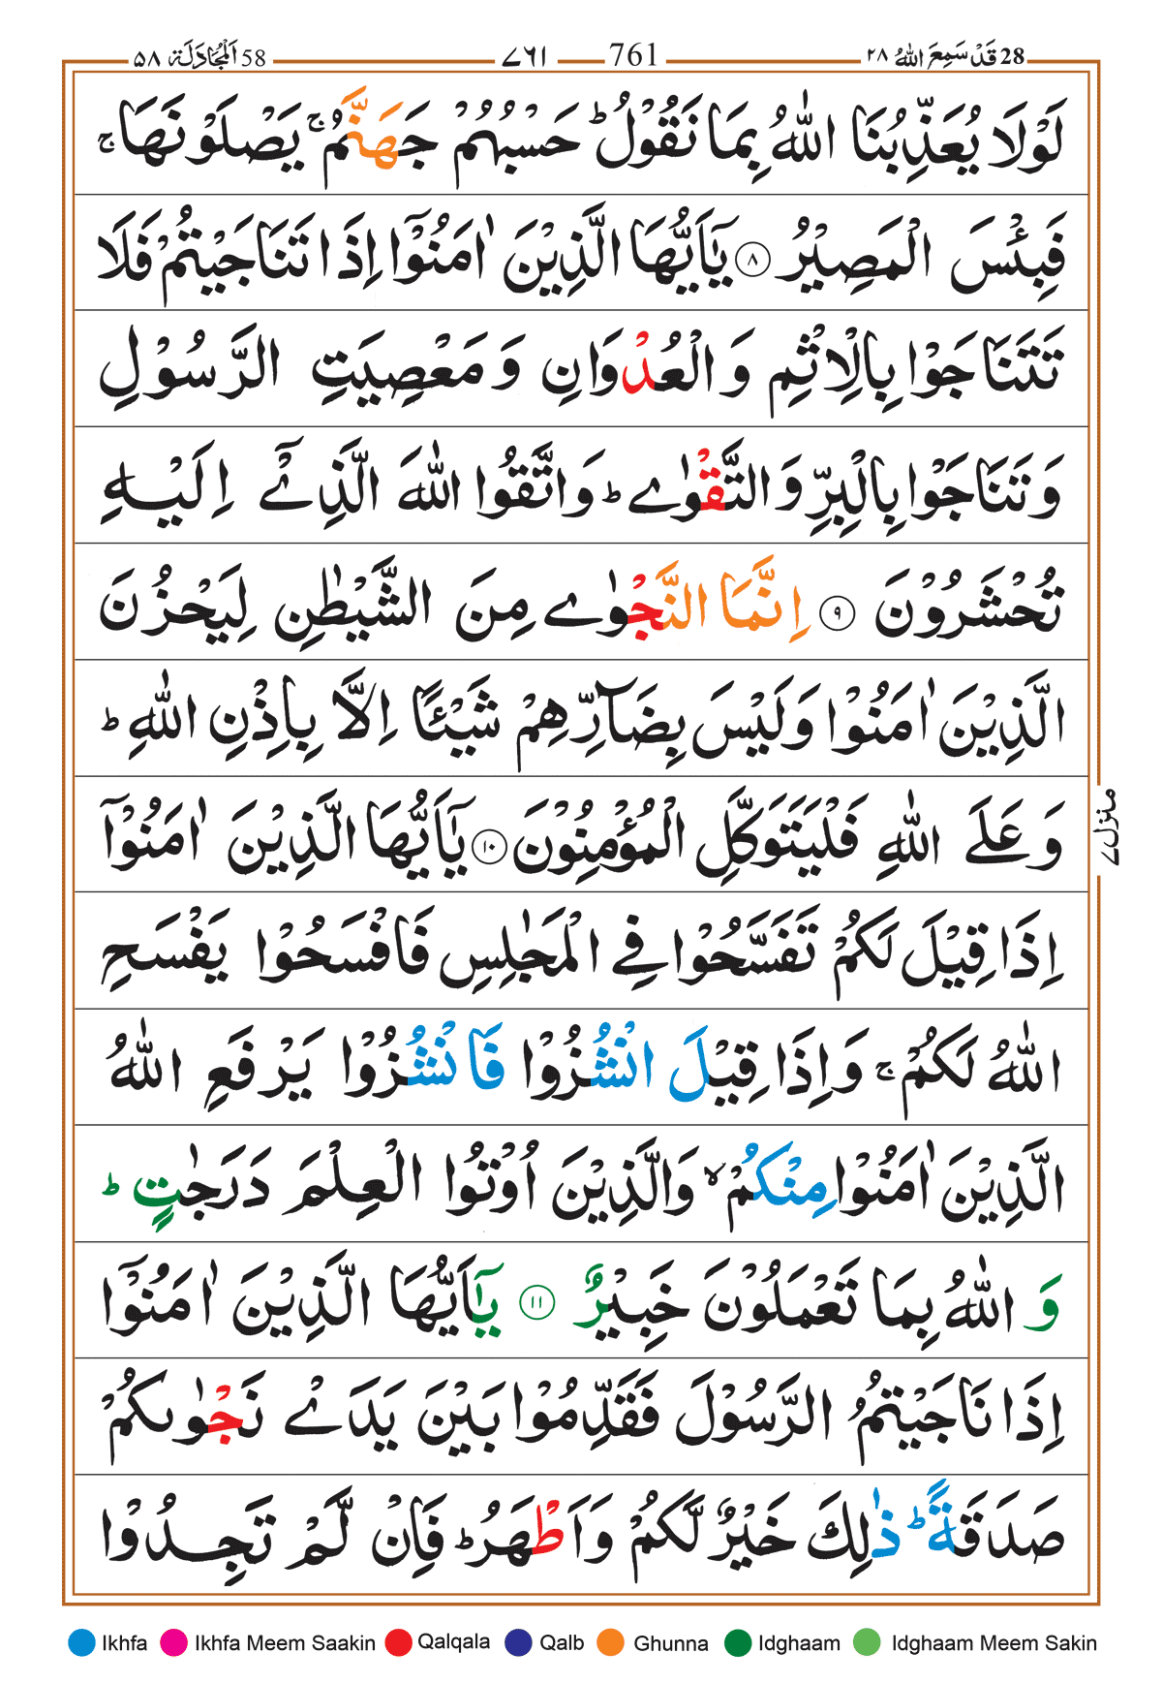 28 قَدْ سَمِعَ اللهُ ٢٨ 761 ٧٦١ 58 اَلْمُجَادَلَة ٥٨
لَوْلَا يُعَذِّبُنَا اللّٰهُ بِمَا نَقُوْلُ ؕ حَسْبُهُمْ جَهَنَّمُ ۚ يَصْلَوْنَهَا ۚ
فَبِئْسَ الْمَصِيْرُ ۝٨ يٰۤاَيُّهَا الَّذِيْنَ اٰمَنُوْۤا اِذَا تَنَاجَيْتُمْ فَلَا
تَتَنَاجَوْا بِالْاِثْمِ وَ الْعُدْوَانِ وَ مَعْصِيَتِ الرَّسُوْلِ
وَ تَنَاجَوْا بِالْبِرِّ وَ التَّقْوٰى ؕ وَ اتَّقُوا اللّٰهَ الَّذِيْۤ اِلَيْهِ
تُحْشَرُوْنَ ۝٩ اِنَّمَا النَّجْوٰى مِنَ الشَّيْطٰنِ لِيَحْزُنَ
الَّذِيْنَ اٰمَنُوْا وَ لَيْسَ بِضَآرِّهِمْ شَيْـًٔا اِلَّا بِاِذْنِ اللّٰهِ ؕ
وَ عَلَى اللّٰهِ فَلْيَتَوَكَّلِ الْمُؤْمِنُوْنَ ۝١٠ يٰۤاَيُّهَا الَّذِيْنَ اٰمَنُوْۤا
اِذَا قِيْلَ لَكُمْ تَفَسَّحُوْا فِي الْمَجٰلِسِ فَافْسَحُوْا يَفْسَحِ
اللّٰهُ لَكُمْ ۚ وَ اِذَا قِيْلَ انْشُزُوْا فَانْشُزُوْا يَرْفَعِ اللّٰهُ
الَّذِيْنَ اٰمَنُوْا مِنْكُمْ ۙ وَ الَّذِيْنَ اُوْتُوا الْعِلْمَ دَرَجٰتٍ ؕ
وَ اللّٰهُ بِمَا تَعْمَلُوْنَ خَبِيْرٌ ۝١١ يٰۤاَيُّهَا الَّذِيْنَ اٰمَنُوْۤا
اِذَا نَاجَيْتُمُ الرَّسُوْلَ فَقَدِّمُوْا بَيْنَ يَدَيْ نَجْوٰىكُمْ
صَدَقَةً ؕ ذٰلِكَ خَيْرٌ لَّكُمْ وَ اَطْهَرُ ؕ فَاِنْ لَّمْ تَجِدُوْا
منزل ٧
Ikhfa Ikhfa Meem Saakin Qalqala Qalb Ghunna Idghaam Idghaam Meem Sakin